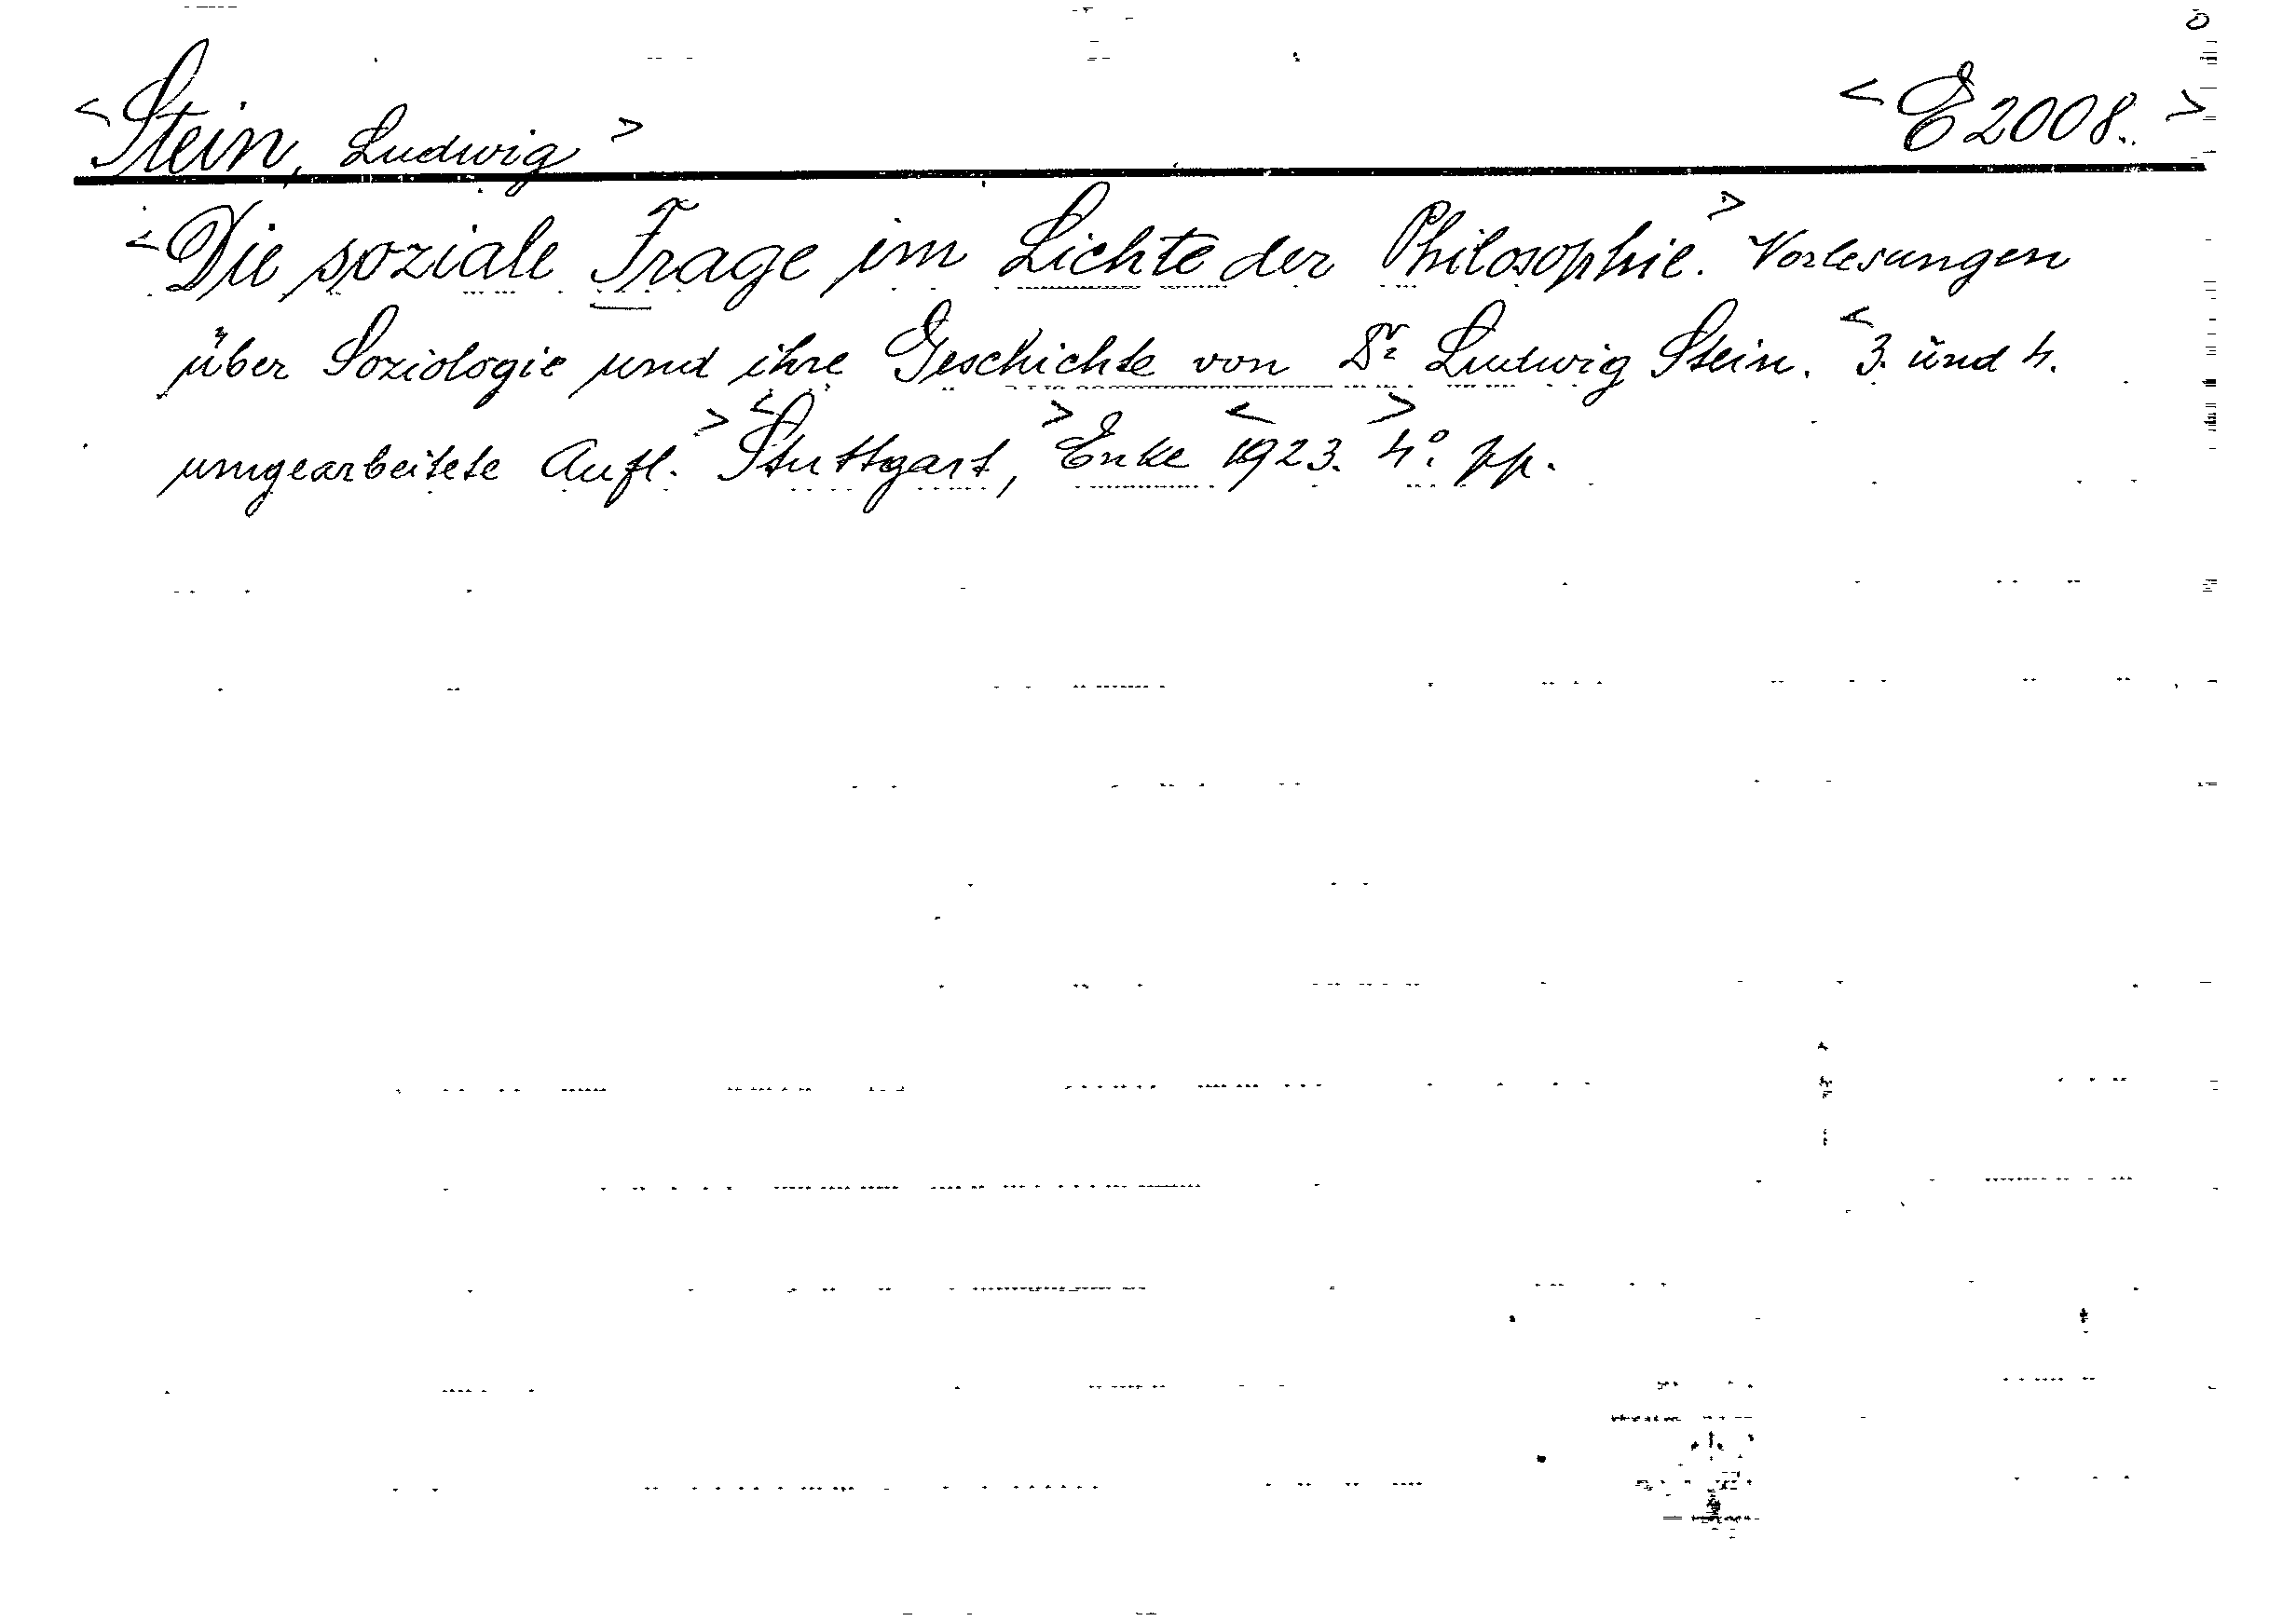 <Stein, Ludwig> <E 2008.>
<Die soziale Frage im Lichte der Philosophie.> Vorlesungen
über Soziologie und ihre Geschichte von Dr Ludwig Stein. <3. und 4.
umgearbeitete Aufl.> <Stuttgart,> Enke <1923.> 4° pp.